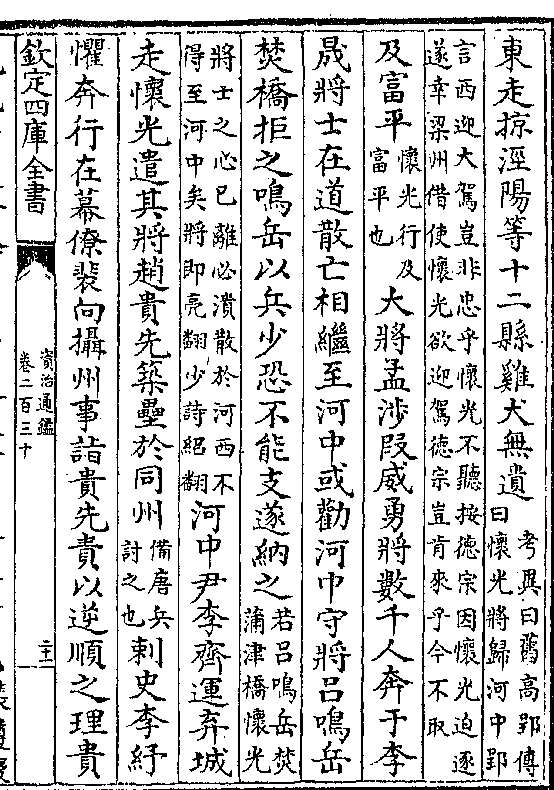 東走掠涇陽等十二縣雞犬無遺考異曰舊高郢傳曰懷光將歸河中郢
言西迎大駕豈非忠乎懷光不聽按徳宗因懷光迫逐遂幸梁州借使懷光欲迎駕徳宗豈肯來乎今不取
及富平懷光行及富平也大將孟涉段威勇將數千人奔于李
晟將士在道散亡相繼至河中或勸河中守將吕鳴岳
焚橋拒之鳴岳以兵少恐不能支遂納之若吕鳴岳焚蒲津橋懷光
將士之心已離必潰散於河西不得至河中矣將即亮翻少詩紹翻河中尹李齊運弃城
走懷光遣其將趙貴先築壘於同州備唐兵討之也刺史李紓
懼奔行在幕僚裴向攝州事詣貴先責以逆順之理貴
欽定四庫全書
資治通鑑
卷二百三十